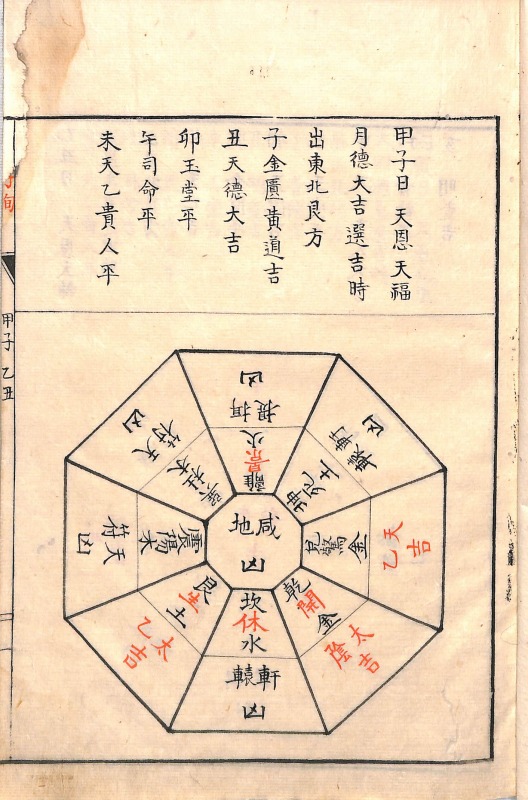 甲子日　天恩天福
月德大吉選吉時
出東北艮方
子金匱黃道吉
丑天德大吉
卯玉堂平
午司命平
未天乙貴人平
旬
甲子　乙丑
咸
地
凶
離
景
火
凶
坤
死
土
軒轅
凶
兌
驚
金
天乙
吉
乾
開
金
太陰
吉
坎
休
水
軒轅
凶
艮
生
土
太乙
吉
震
傷
木
天符
凶
巽
杜
木
天符
凶